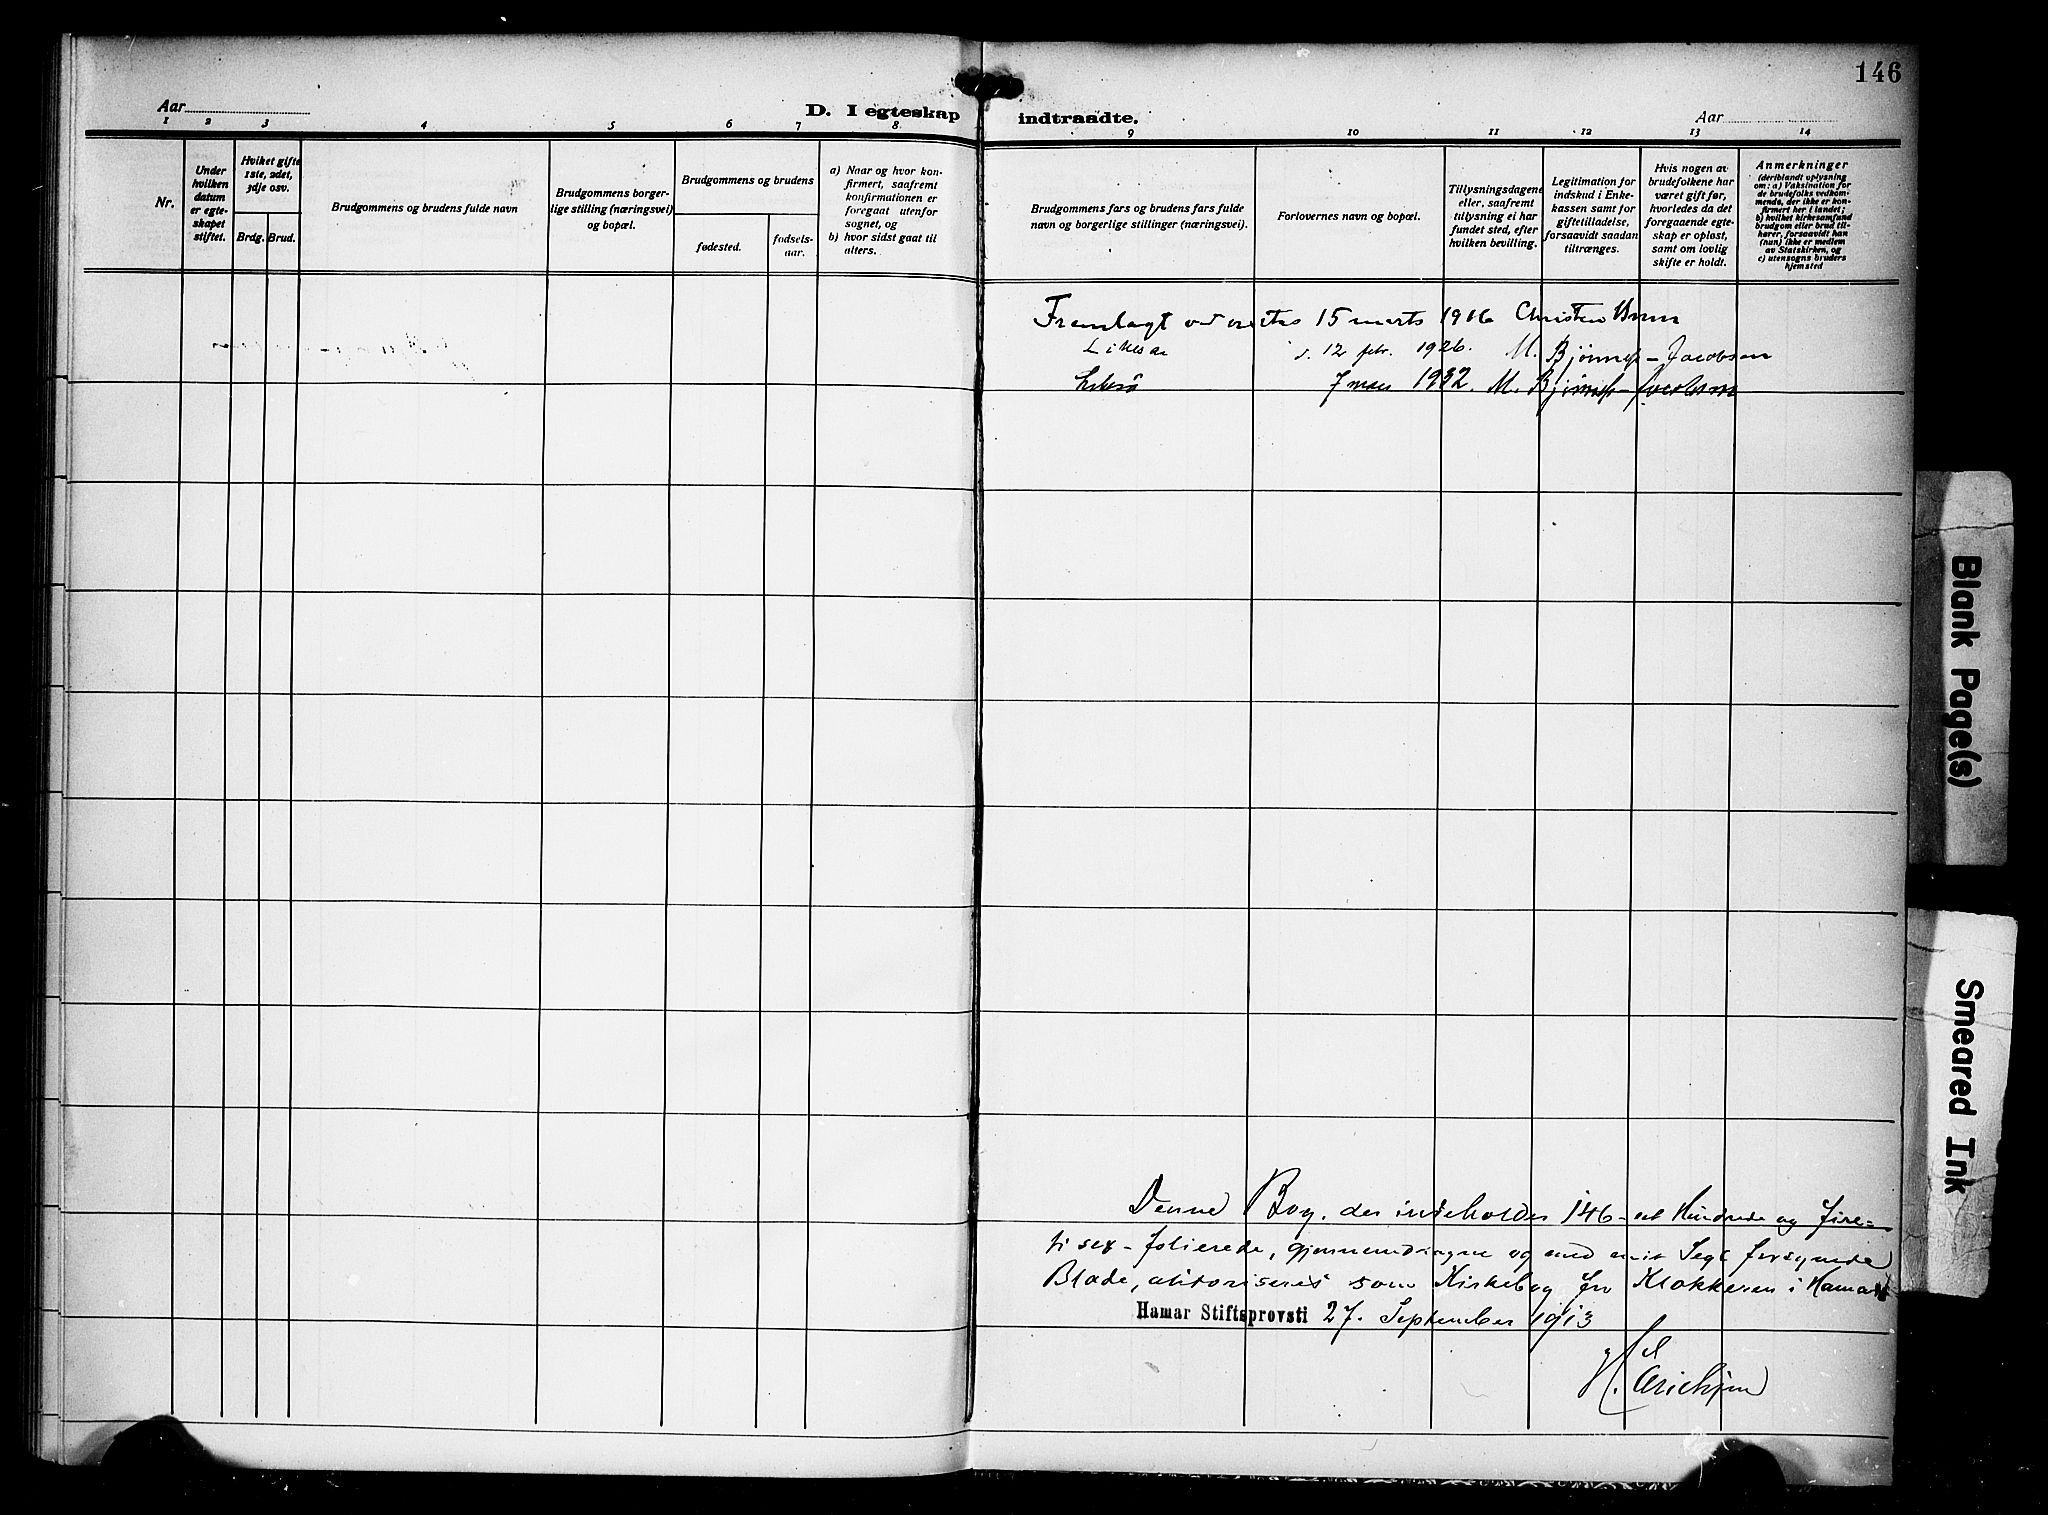 146
Aar
D. I egteskap
indtraadte.
Aar
1 2 3 4 5 6 7 8
9 10 11 12 13 14
Nr.
Under
hvilken
datum
er egte-
skapet
stiftet.
Hvilket gifte
1ste, 2det,
3dje osv.
Brdg. Brud.
Brudgommens og brudens fulde navn
Brudgommens borger-
lige stilling (næringsvei)
og bopæl.
Brudgommens og brudens
fødested.
fødsels-
aar.
a) Naar og hvor kon-
firmert, saafremt
konfirmationen er
foregaat utenfor
sognet, og
b) hvor sidst gaat til
alters.
Brudgommens fars og brudens fars fulde
navn og borgerlige stillinger (næringsvei).
Forlovernes navn og bopæl.
Tillysningsdagene
eller, saafremt
tillysning ei har
fundet sted, efter
hvilken bevilling.
Legitimation for
indskud i Enke-
kassen samt for
giftetilladelse,
forsaavidt saadan
tiltrænges.
Hvis nogen av
brudefolkene har
været gift før,
hvorledes da det
foregaaende egte-
skap er opløst,
samt om lovlig
skifte er holdt.
Anmerkninger
(deriblandt oplysning
om: a) Vaksination for
de brudefolks vedkom-
mende, der ikke er kon-
firmert her i landet;
b) hvilket kirkesamfund
brudgom eller brud til-
hører, forsaavidt han
(hun) ikke er medlem
av Statskirken, og
c) utensogns bruders
hjemsted
Fremlagt 15 marts 1916 Christen Brun
Likesaa 12 febr. 1926. M. Bjønnes-Jacobsen
Likesaa 7 mars 1932. M. Bjønnes-Jacobsen
Denne Bog, der indeholder 146 - et Hundrede og fire-
ti sex - folierede, gjennemdragne og med mit Segl forsynede
Blade, autoriseres som Kirkebog for Klokkeren i Hamar
Hamar Stiftsprovsti 27. September 1913
Blank Page(s)
Smeared Ink